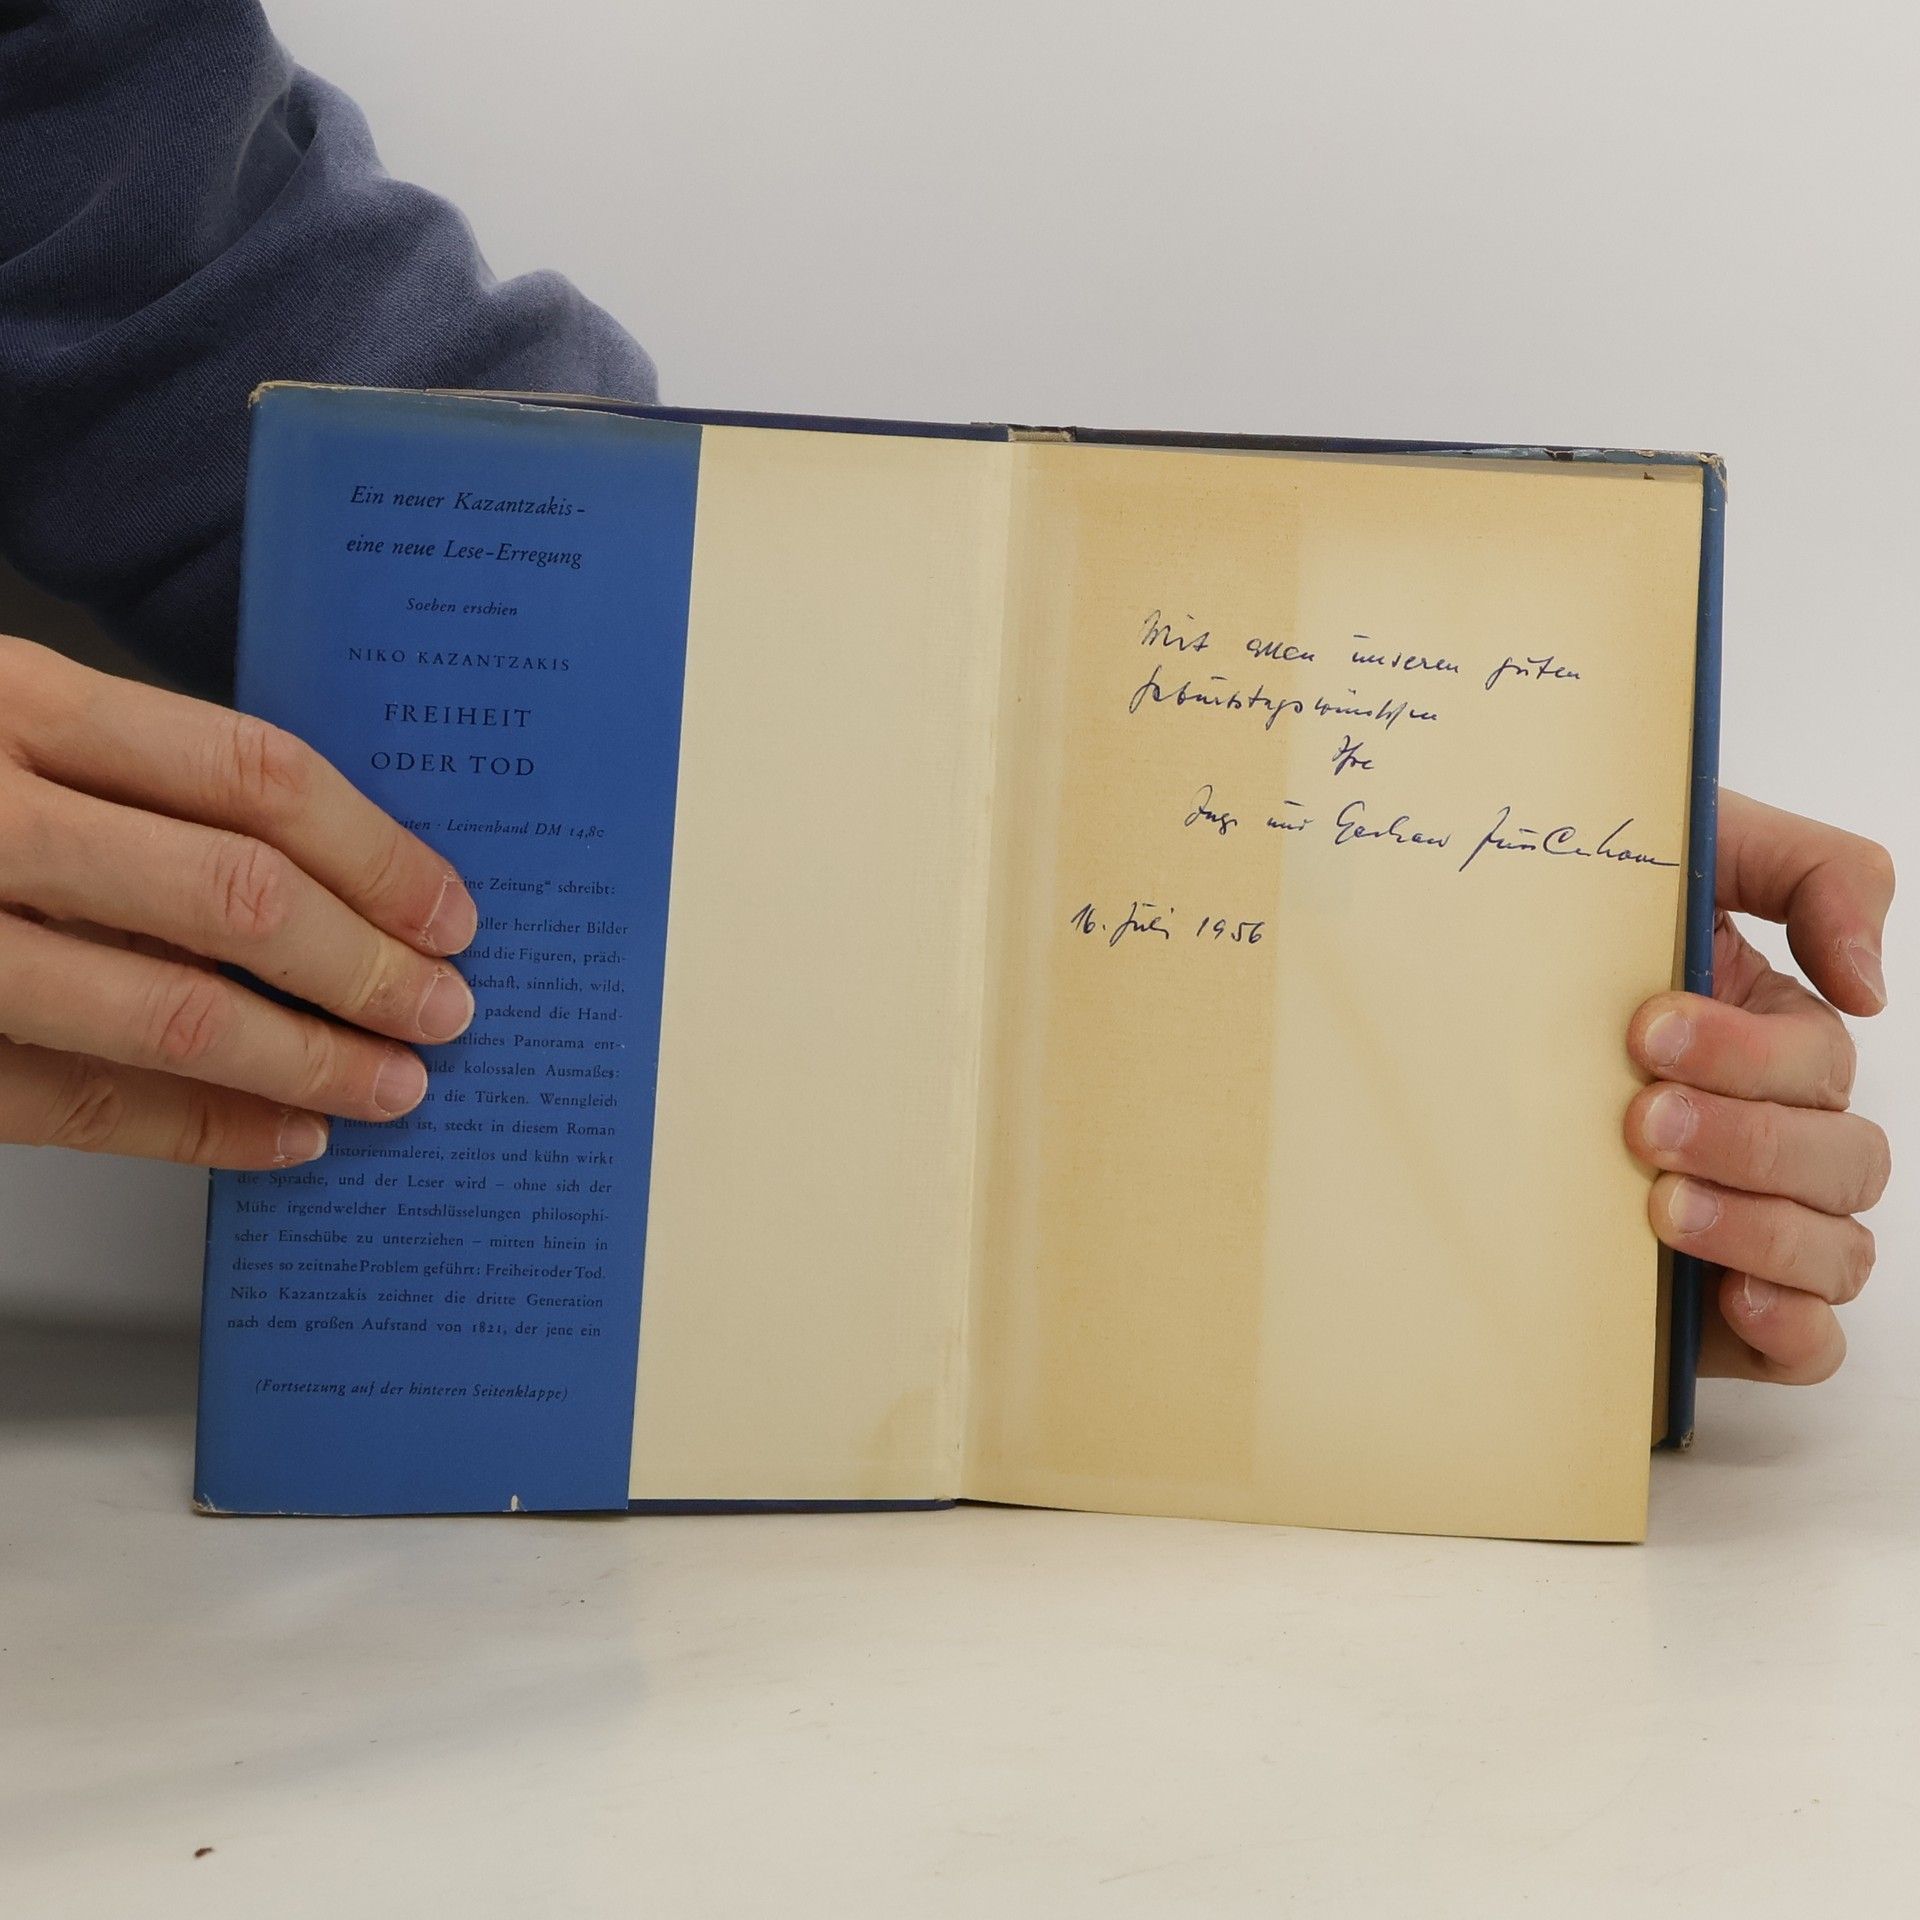 Ein neuer Kazantzakis –
eine neue Lese-Erregung
Soeben erschien
NIKO KAZANTZAKIS
FREIHEIT
ODER TOD
Leinenband DM 14,80
Zeitung“ schreibt:
herrlicher Bilder
sind die Figuren, präch-
sinnlich, wild,
packend die Hand-
Panorama ent-
kolossalen Ausmaßes:
die Türken. Wenngleich
ist, steckt in diesem Roman
Historienmalerei, zeitlos und kühn wirkt
die Sprache, und der Leser wird – ohne sich der
Mühe irgendwelcher Entschlüsselungen philosophi-
scher Einschübe zu unterziehen – mitten hinein in
dieses so zeitnahe Problem geführt: Freiheit oder Tod.
Niko Kazantzakis zeichnet die dritte Generation
nach dem großen Aufstand von 1821, der jene ein
(Fortsetzung auf der hinteren Seitenklappe)
Mit allen unseren guten
Geburtstagswünschen
Ihre
Inge und
16. Juli 1956